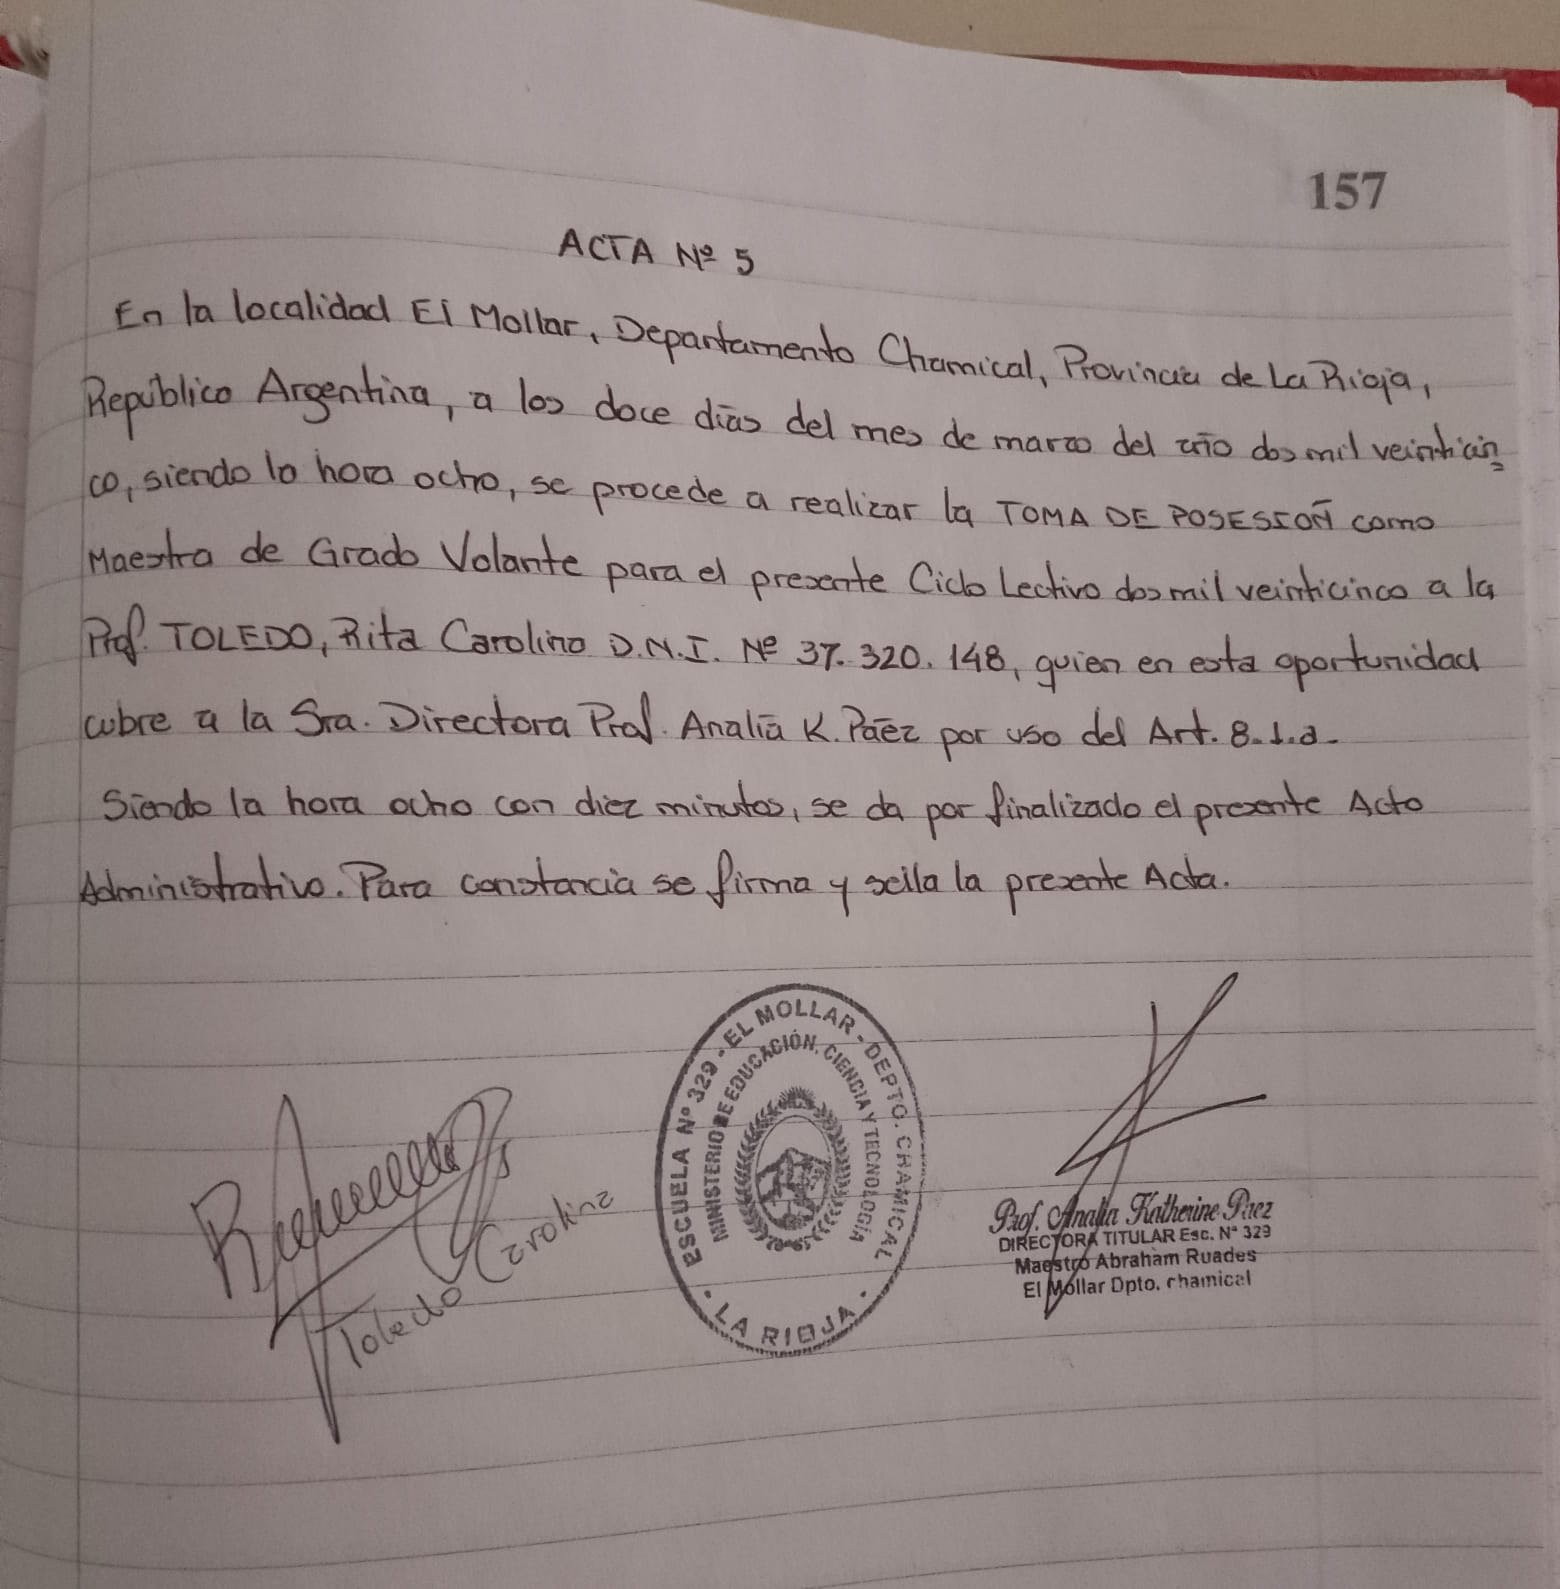 157
ACTA Nº 5
En la localidad El Mollar, Departamento Chamical, Provincia de La Rioja,
República Argentina, a los doce días del mes de marzo del año dos mil veinticin
co, siendo la hora ocho, se procede a realizar la TOMA DE POSESIÓN como
Maestra de Grado Volante para el presente Ciclo Lectivo dos mil veinticinco a la
Prof. TOLEDO, Rita Carolina D.N.I. Nº 37.320.148, quien en esta oportunidad
cubre a la Sra. Directora Prof. Analía K. Páez por uso del Art. 8.1.a.
Siendo la hora ocho con diez minutos, se da por finalizado el presente Acto
Administrativo. Para constancia se firma y sella la presente Acta.
ESCUELA Nº 329 - EL MOLLAR - DEPTO. CHAMICAL
MINISTERIO DE EDUCACIÓN, CIENCIA Y TECNOLOGÍA
- LA RIOJA -
Toledo Carolina
Prof. Analia Katherine Páez
DIRECTORA TITULAR Esc. Nº 329
Maestro Abraham Ruades
El Mollar Dpto. chamical